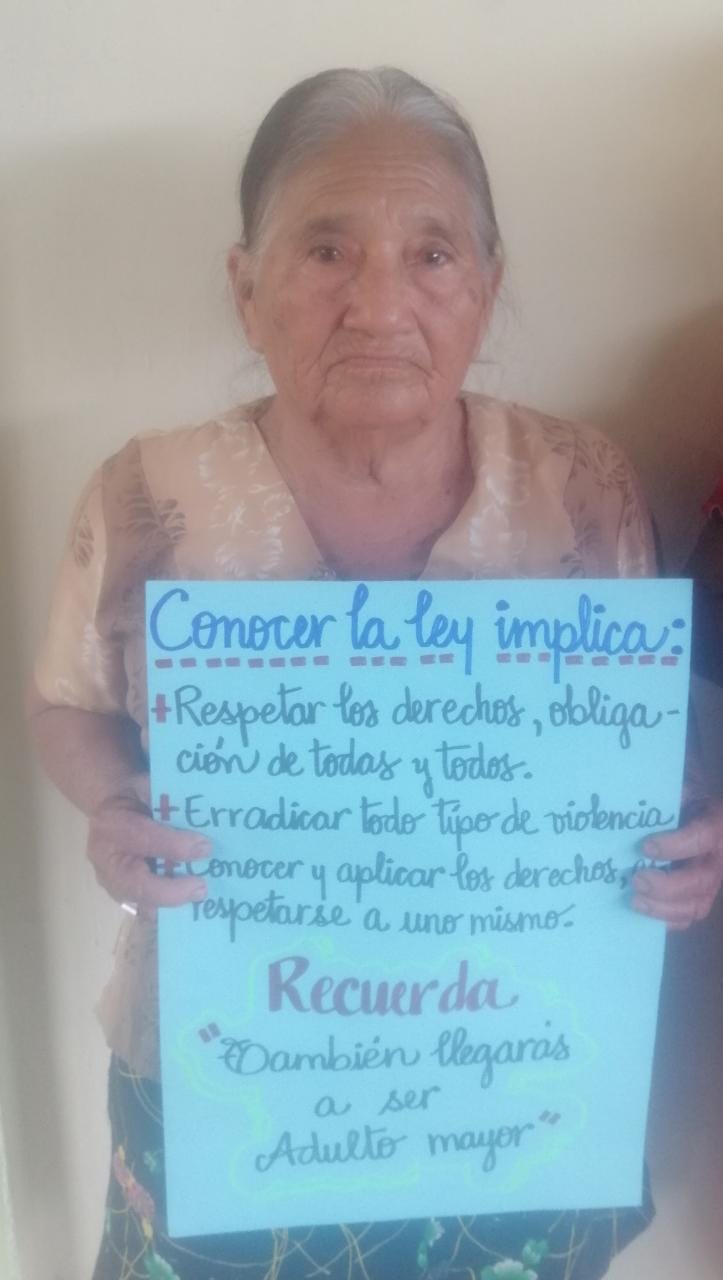 Conocer la ley implica:
+Respetar los derechos, obliga-
ción de todas y todos.
+Erradicar todo tipo de violencia
+Conocer y aplicar los derechos,
respetarse a uno mismo.
Recuerda
"También llegarás
a ser
Adulto mayor"